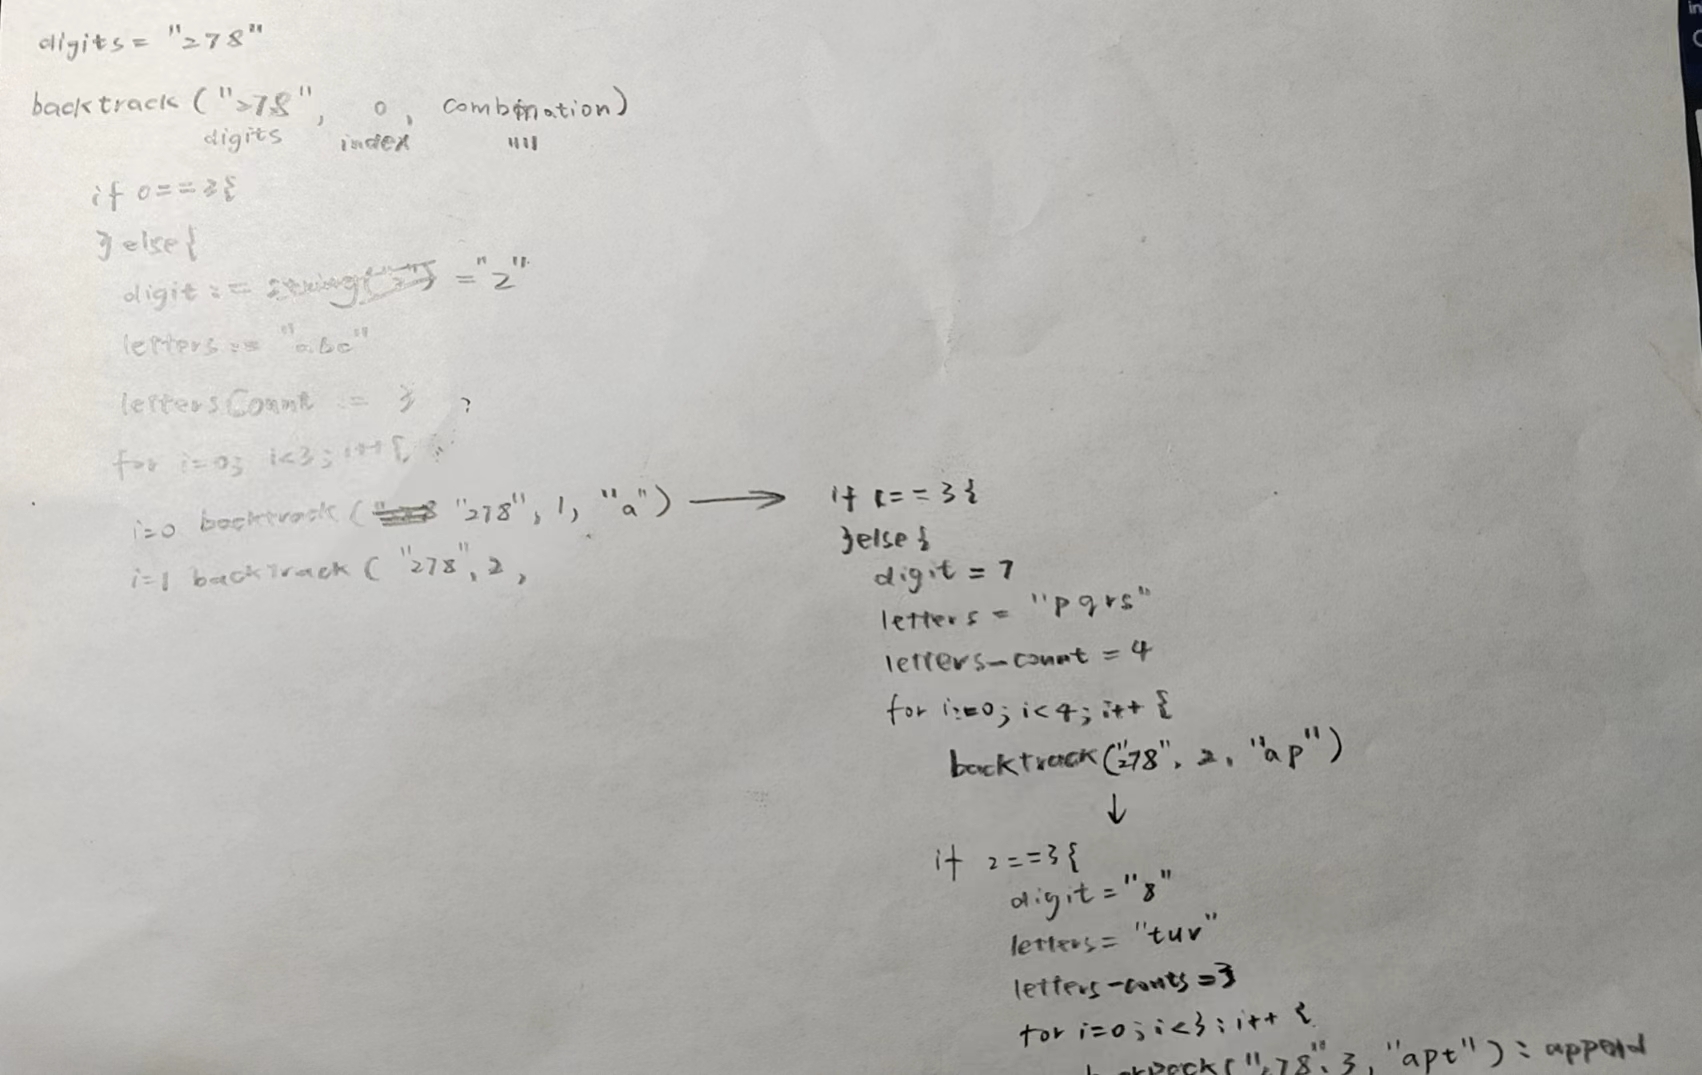 digits = "278"
backtrack ("278", 0, combination)
digits index ""
if 0==3{
} else{
digit := = "2"
letters := "abc"
lettersCount := 3 ?
for i=0; i<3; i++{
i=0 backtrack ( "278", 1, "a") →
i=1 backtrack ( "278", 2,
if 1==3{
}else{
digit = 7
letters = "pqrs"
letters-count = 4
for i:=0; i<4; i++ {
backtrack("278", 2, "ap")
↓
if 2==3{
digit = "8"
letters = "tuv"
letters-conts=3
for i=0; i<3; i++ {
("278", 3, "apt") : append